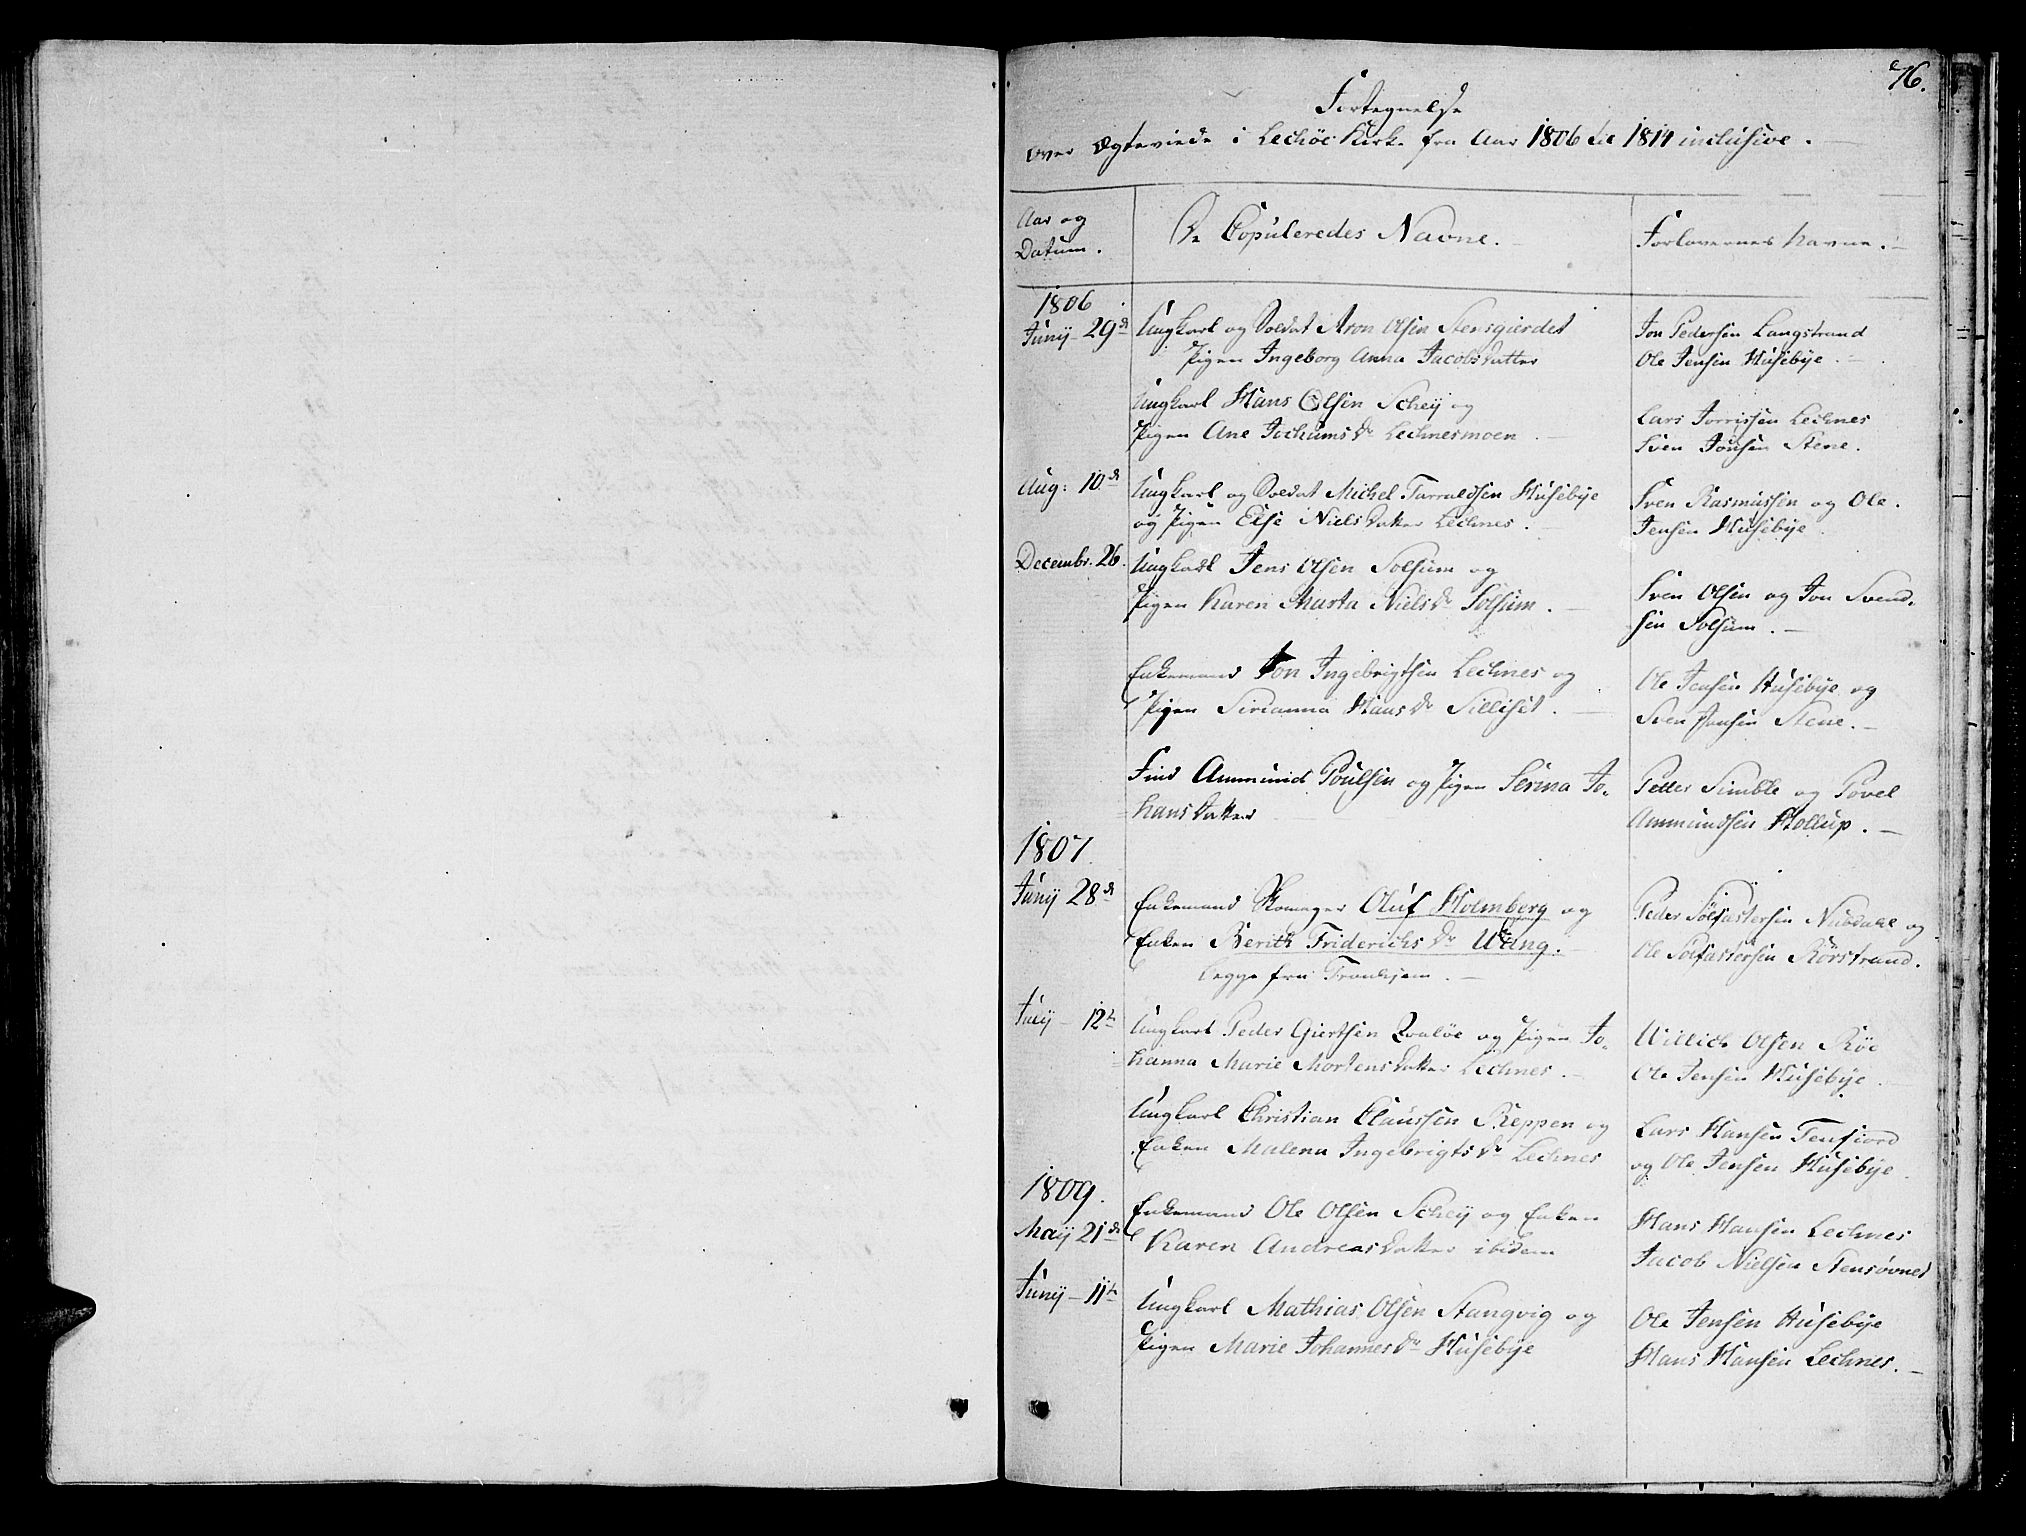 76.
Fortegnelse
over Ægteviede i Lechöe Kirke fra Aar 1806 til 1814 inclusive.
Aar og
Datum.
De Copuleredes Navne.
Forlovernes Navne.
1806
Junij 29de
Ungkarl og Soldat Aron Olsen Stensgierdet
Pigen Ingeborg Anna Jacobsdatter
Jon Pedersen Langstrand
Ole Jensen Husebye.
Ungkarl Hans Olsen Scheij og
Pigen Ane Jochumsdr Lechnesmoen.
Lars Jorrissen Lechnes
Sven Jonsen Stene.
Aug: 10de
Ungkarl og Soldat Michel Tarraldsen Husebye
og Pigen Else Nielsdatter Lechnes.
Sven Rasmussen og Ole
Jensen Husebye
Decembr. 26.
Ungkarl Jens Olsen Solsum og
Pigen Karen Marta Nielsdr Solsum.
Sven Olsen og Jon Svend-
sen Solsum.
Enkemand Jon Ingebrigtsen Lechnes og
Pigen Sirianna Hansdr Silliset.
Ole Jensen Husebye og
Sven Jonsen Stene.
Find Ammund Poulsen og Pigen Serina Jo-
hansdatter
Petter Simble og Povel
Ammundsen Hollup.
1807.
Junij 28de
Enkemand Skomager Oluf Holmberg og
Enken Berith Friderichsdr Wang.
Begge fra Tronhjem.
Peder Solfastersen Nubdahl og
Ole Solfastersen Rörstrand.
Julij 12te
Ungkarl Peder Giertsen Qvalöe og Pigen Jo-
hanna Marie Mortensdatter Lechnes.
Willich Olsen Röe
Ole Jensen Husebye.
Ungkarl Christian Claussen Reppen og
Enken Malena Ingebrigtsdr Lechnes
Lars Hansen Tenfiord
og Ole Jensen Husebye
1809.
Maij 21de
Enkemand Ole Olsen Scheij og Enken
Karen Andreasdatter ibidem
Hans Hansen Lechnes
Jacob Nielsen Stensövnes
Junij 11te
Ungkarl Mathias Olsen Stangvig og
Pigen Marie Johannesdr Husebye
Ole Jensen Husebye
Hans Hansen Lechnes.